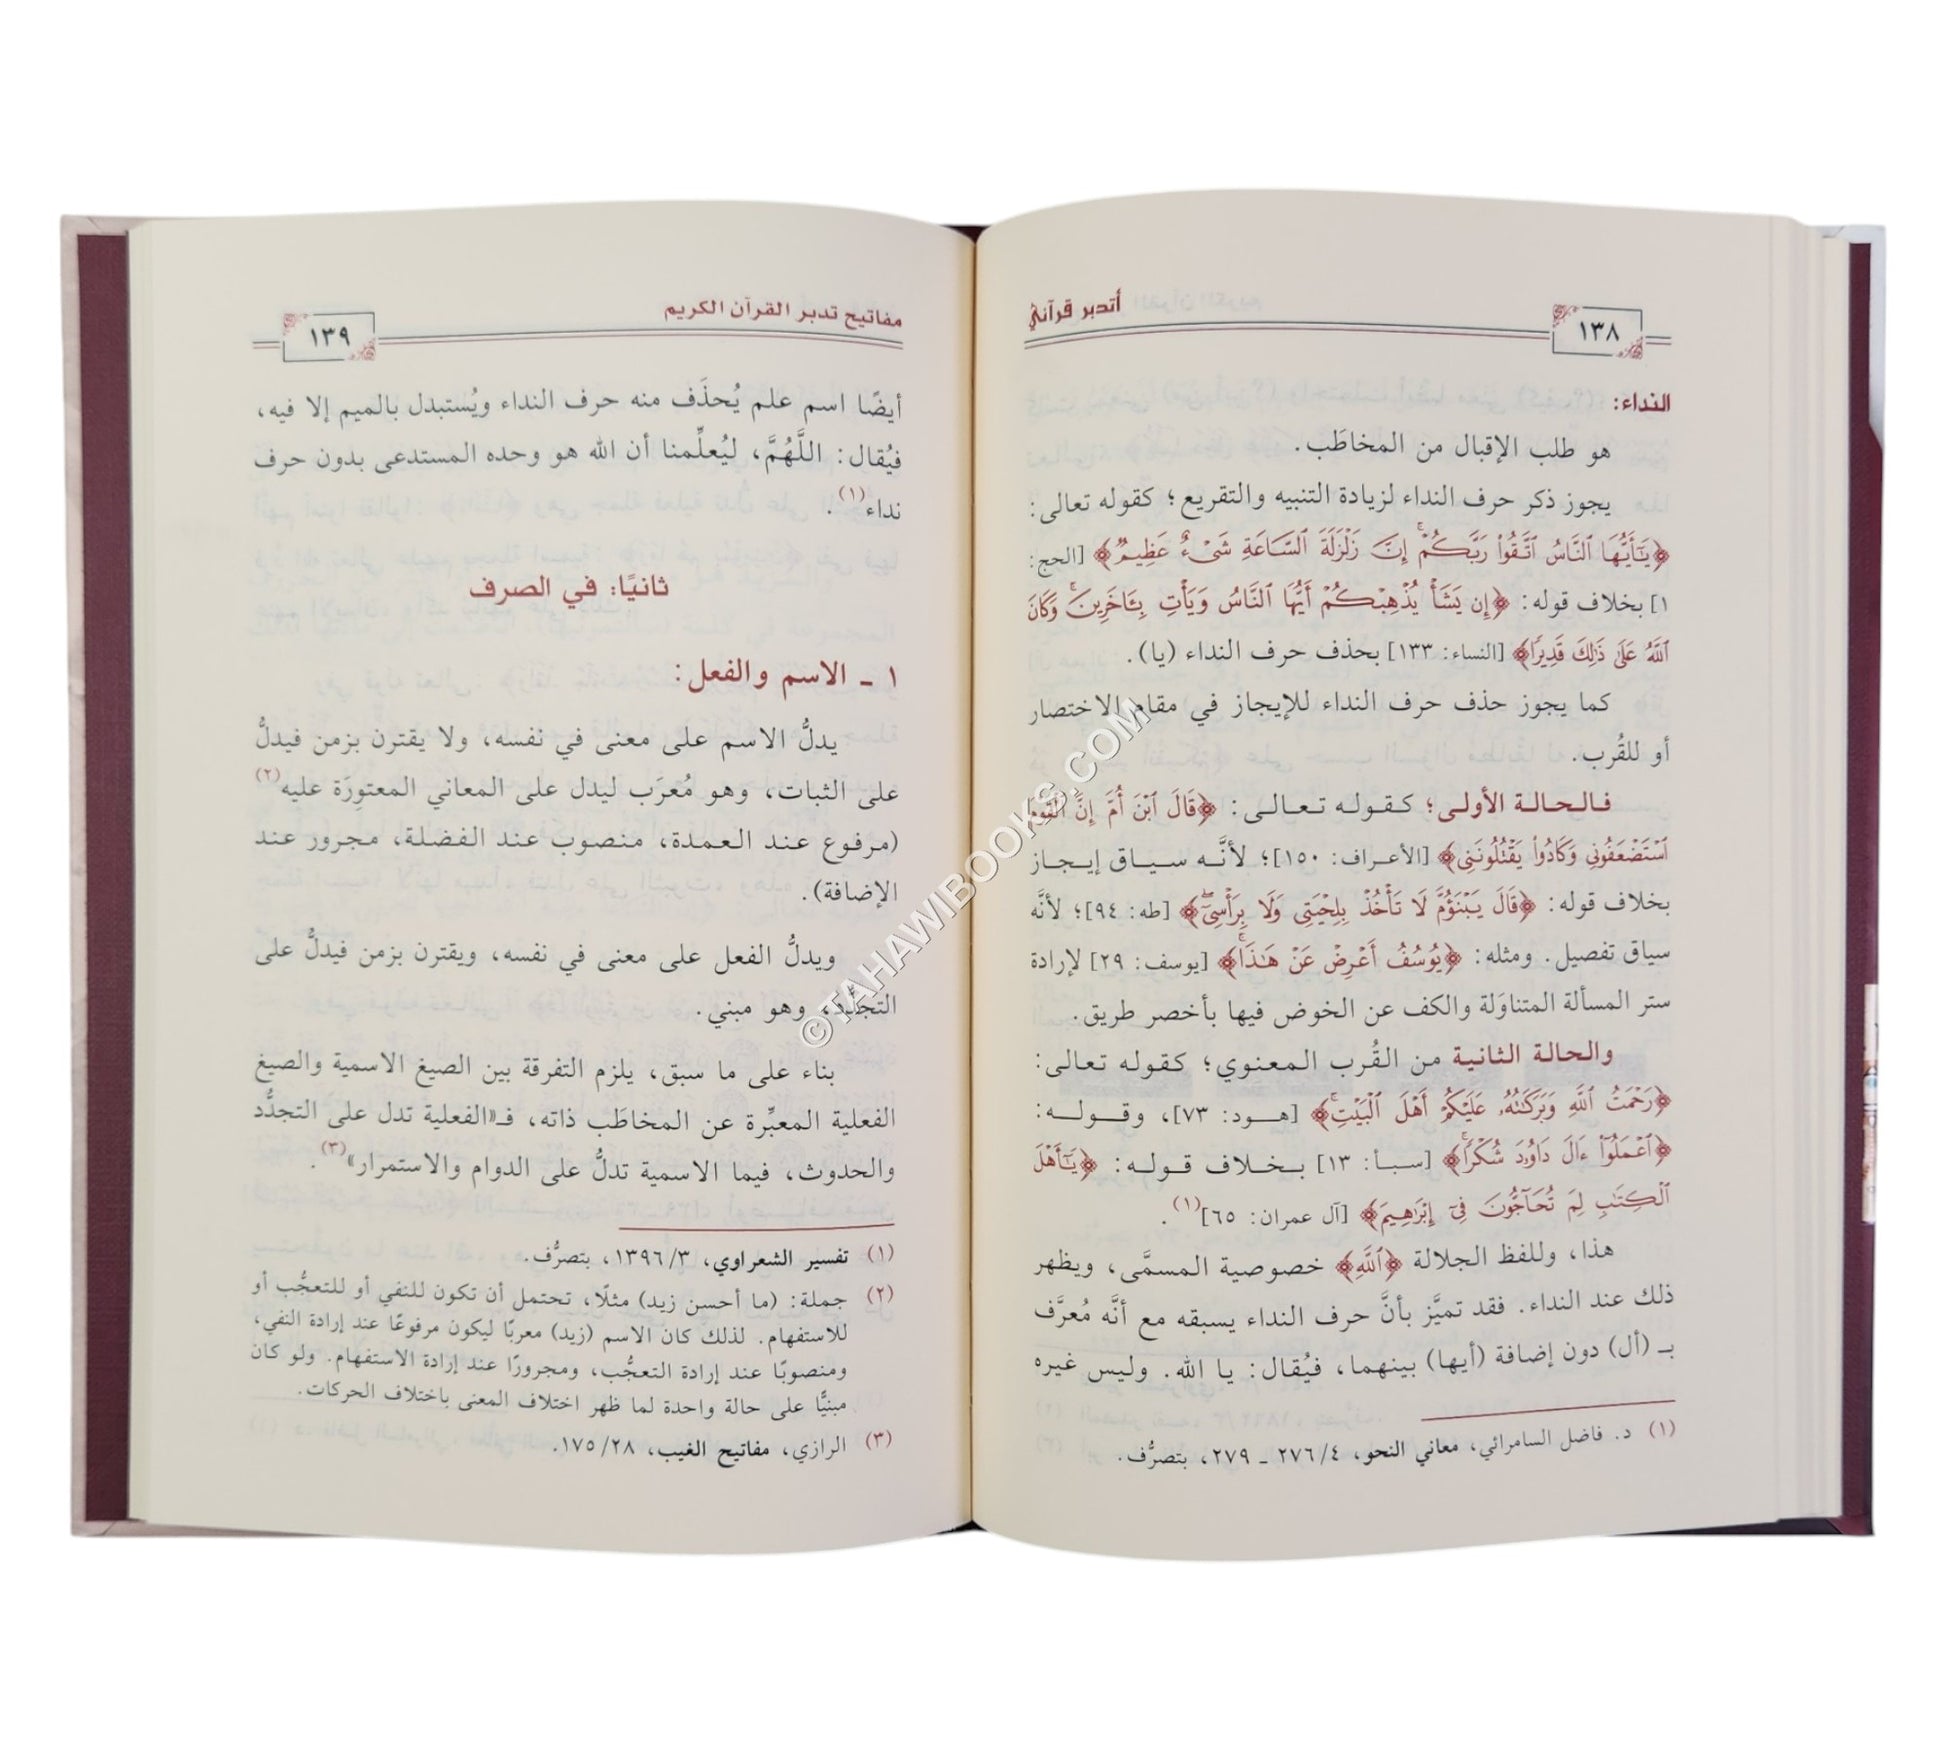 أتدبر قرآني
١٣٨
النداء:
هو طلب الإقبال من المخاطَب.
يجوز ذكر حرف النداء لزيادة التنبيه والتقريع؛ كقوله تعالى:
﴿يَٰٓأَيُّهَا ٱلنَّاسُ ٱتَّقُوا۟ رَبَّكُمْۚ إِنَّ زَلْزَلَةَ ٱلسَّاعَةِ شَىْءٌ عَظِيمٌ﴾ [الحج:
١] بخلاف قوله: ﴿إِن يَشَأْ يُذْهِبْكُمْ أَيُّهَا ٱلنَّاسُ وَيَأْتِ بِـَٔاخَرِينَۚ وَكَانَ
ٱللَّهُ عَلَىٰ ذَٰلِكَ قَدِيرًا﴾ [النساء: ١٣٣] بحذف حرف النداء (يا).
كما يجوز حذف حرف النداء للإيجاز في مقام الاختصار
أو للقُرب.
فالحالة الأولى؛ كقوله تعالى: ﴿قَالَ ٱبْنَ أُمَّ إِنَّ ٱلْقَوْمَ
ٱسْتَضْعَفُونِى وَكَادُوا۟ يَقْتُلُونَنِى﴾ [الأعراف: ١٥٠]؛ لأنَّه سياق إيجاز
بخلاف قوله: ﴿قَالَ يَبْنَؤُمَّ لَا تَأْخُذْ بِلِحْيَتِى وَلَا بِرَأْسِىٓۖ﴾ [طه: ٩٤]؛ لأنَّه
سياق تفصيل. ومثله: ﴿يُوسُفُ أَعْرِضْ عَنْ هَٰذَاۚ﴾ [يوسف: ٢٩] لإرادة
ستر المسألة المتناوَلة والكف عن الخوض فيها بأخصر طريق.
والحالة الثانية من القُرب المعنوي؛ كقوله تعالى:
﴿رَحْمَتُ ٱللَّهِ وَبَرَكَٰتُهُۥ عَلَيْكُمْ أَهْلَ ٱلْبَيْتِۚ﴾ [هود: ٧٣]، وقوله:
﴿ٱعْمَلُوٓا۟ ءَالَ دَاوُۥدَ شُكْرًاۚ﴾ [سبأ: ١٣] بخلاف قوله: ﴿يَٰٓأَهْلَ
ٱلْكِتَٰبِ لِمَ تُحَآجُّونَ فِىٓ إِبْرَٰهِيمَ﴾ [آل عمران: ٦٥]⁽¹⁾.
هذا، وللفظ الجلالة ﴿ٱللَّهِ﴾ خصوصية المسمَّى، ويظهر
ذلك عند النداء. فقد تميَّز بأنَّ حرف النداء يسبقه مع أنَّه مُعرَّف
بـ (أل) دون إضافة (أيها) بينهما، فيُقال: يا الله. وليس غيره
(١) د. فاضل السامرائي، معاني النحو، ٤/ ٢٧٦ ـ ٢٧٩، بتصرُّف.
مفاتيح تدبر القرآن الكريم
١٣٩
أيضًا اسم علم يُحذَف منه حرف النداء ويُستبدل بالميم إلا فيه،
فيُقال: اللَّهُمَّ، ليُعلِّمنا أن الله هو وحده المستدعى بدون حرف
نداء(١).
ثانيًا: في الصرف
١ ـ الاسم والفعل:
يدلُّ الاسم على معنى في نفسه، ولا يقترن بزمن فيدلُّ
على الثبات، وهو مُعرَب ليدل على المعاني المعتوِرَة عليه(٢)
(مرفوع عند العمدة، منصوب عند الفضلة، مجرور عند
الإضافة).
ويدلُّ الفعل على معنى في نفسه، ويقترن بزمن فيدلُّ على
التجدُّد، وهو مبني.
بناء على ما سبق، يلزم التفرقة بين الصيغ الاسمية والصيغ
الفعلية المعبِّرة عن المخاطَب ذاته، فـ«الفعلية تدل على التجدُّد
والحدوث، فيما الاسمية تدلُّ على الدوام والاستمرار»(٣).
(١) تفسير الشعراوي، ٣/ ١٣٩٦، بتصرُّف.
(٢) جملة: (ما أحسن زيد) مثلًا، تحتمل أن تكون للنفي أو للتعجُّب أو
للاستفهام. لذلك كان الاسم (زيد) معربًا ليكون مرفوعًا عند إرادة النفي،
ومنصوبًا عند إرادة التعجُّب، ومجرورًا عند إرادة الاستفهام. ولو كان
مبنيًّا على حالة واحدة لما ظهر اختلاف المعنى باختلاف الحركات.
(٣) الرازي، مفاتيح الغيب، ٢٨/ ١٧٥.
©TAHAWIBOOKS.COM